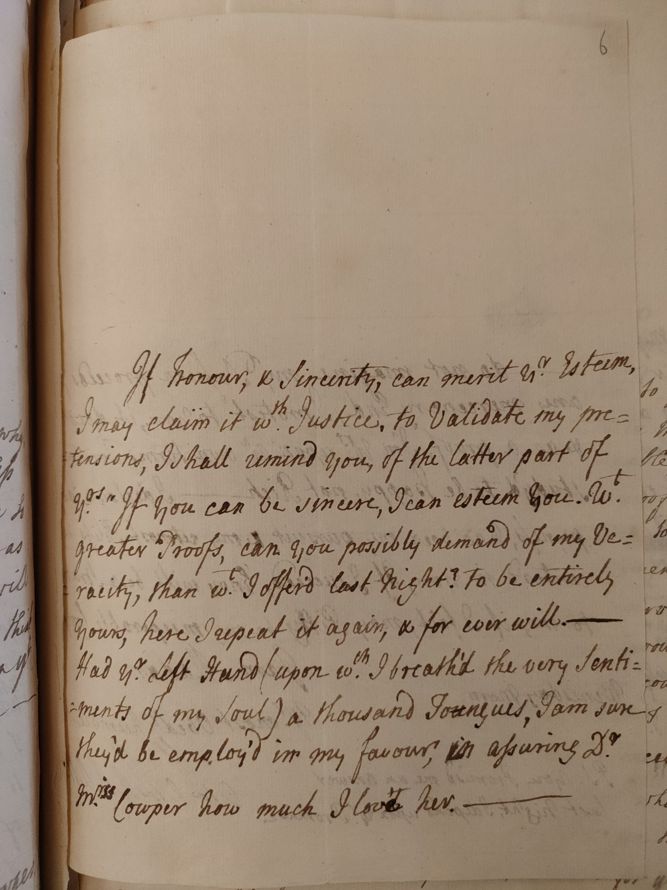 6
If honour, & Sincerity, can merit yr. Esteem,
I may claim it wth. Justice. to Validate my pre=
=tensions, I shall remind you, of the latter part of
yrs. " If you can be sincere, I can esteem you. Wt.
greater Proofs, can you possibly demand of my Ve=
=racity, than wt. I offer'd last Night? to be entirely
yours, here I repeat it again, & for ever will. —
Had yr. Left Hand (upon wch. I breath'd the very Senti=
=ments of my Soul) a thousand Toungues, I am sure
they'd be employ'd in my favour, in assuring Dr.
Miss. Cowper how much I love her. —